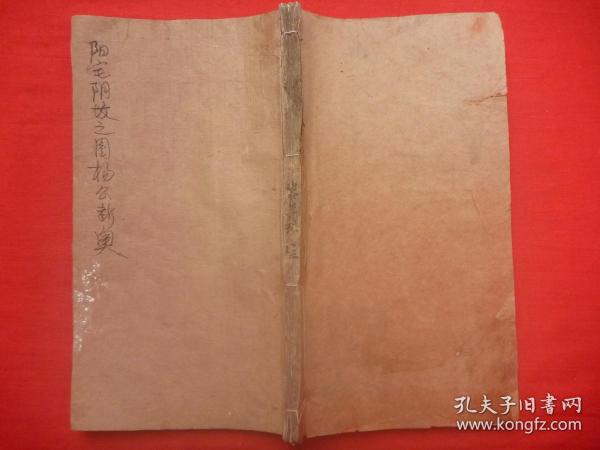 阳宅阴坟之图杨公新奥
孔夫子旧书网
www.kongfz.com